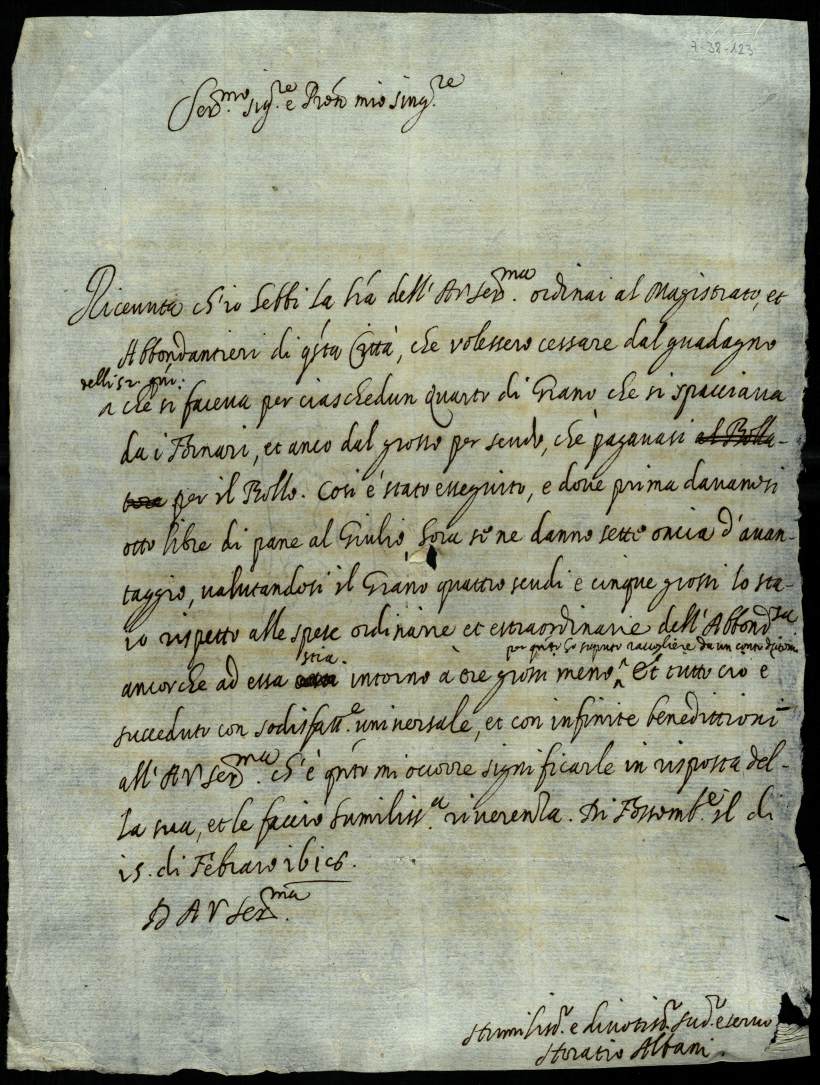 7-38-123
Ser.mo sig.re e Pròn mio sing.re
Riceuuta ch'io hebbi la lrã dell'A V Ser.ma ordinai al Magistrato, et
Abbondantieri di q̃sta Città, che volessero cessare dal guadagno
delli 52. qni:
che si faceua per ciaschedun quarto di Grano che si spacciaua
da i Fornari, et anco dal grosso per scudo, che pagauasi al Bolla-
tore per il Bollo. Cosi è stato esseguito, e doue prima dauansi
otto libre di pane al Giulio hora se ne danno sette oncia d'auan-
taggio, ualutandosi il Grano quattro scudi e cinque grossi lo sta-
ro rispetto alle spese ordinarie et estraordinarie dell'Abbond.za
per q̃nto hò saputo raccogliere da un conto
ancorche ad essa stia. intorno à tre grossi meno Et tutto ciò è
succeduto con sodisfatt.e uniuersale, et con infinite benedittioni
all'A V Ser.ma ch'è q̃nto mi occorre significarle in risposta del-
la sua, et le faccio humiliss.a riuerenza. Di Fossomb.e il di
15. di Febraro 1616.
D A V Ser.ma
Humiliss.o e diuotiss.o sud.o e seruo
Horatio Albani.